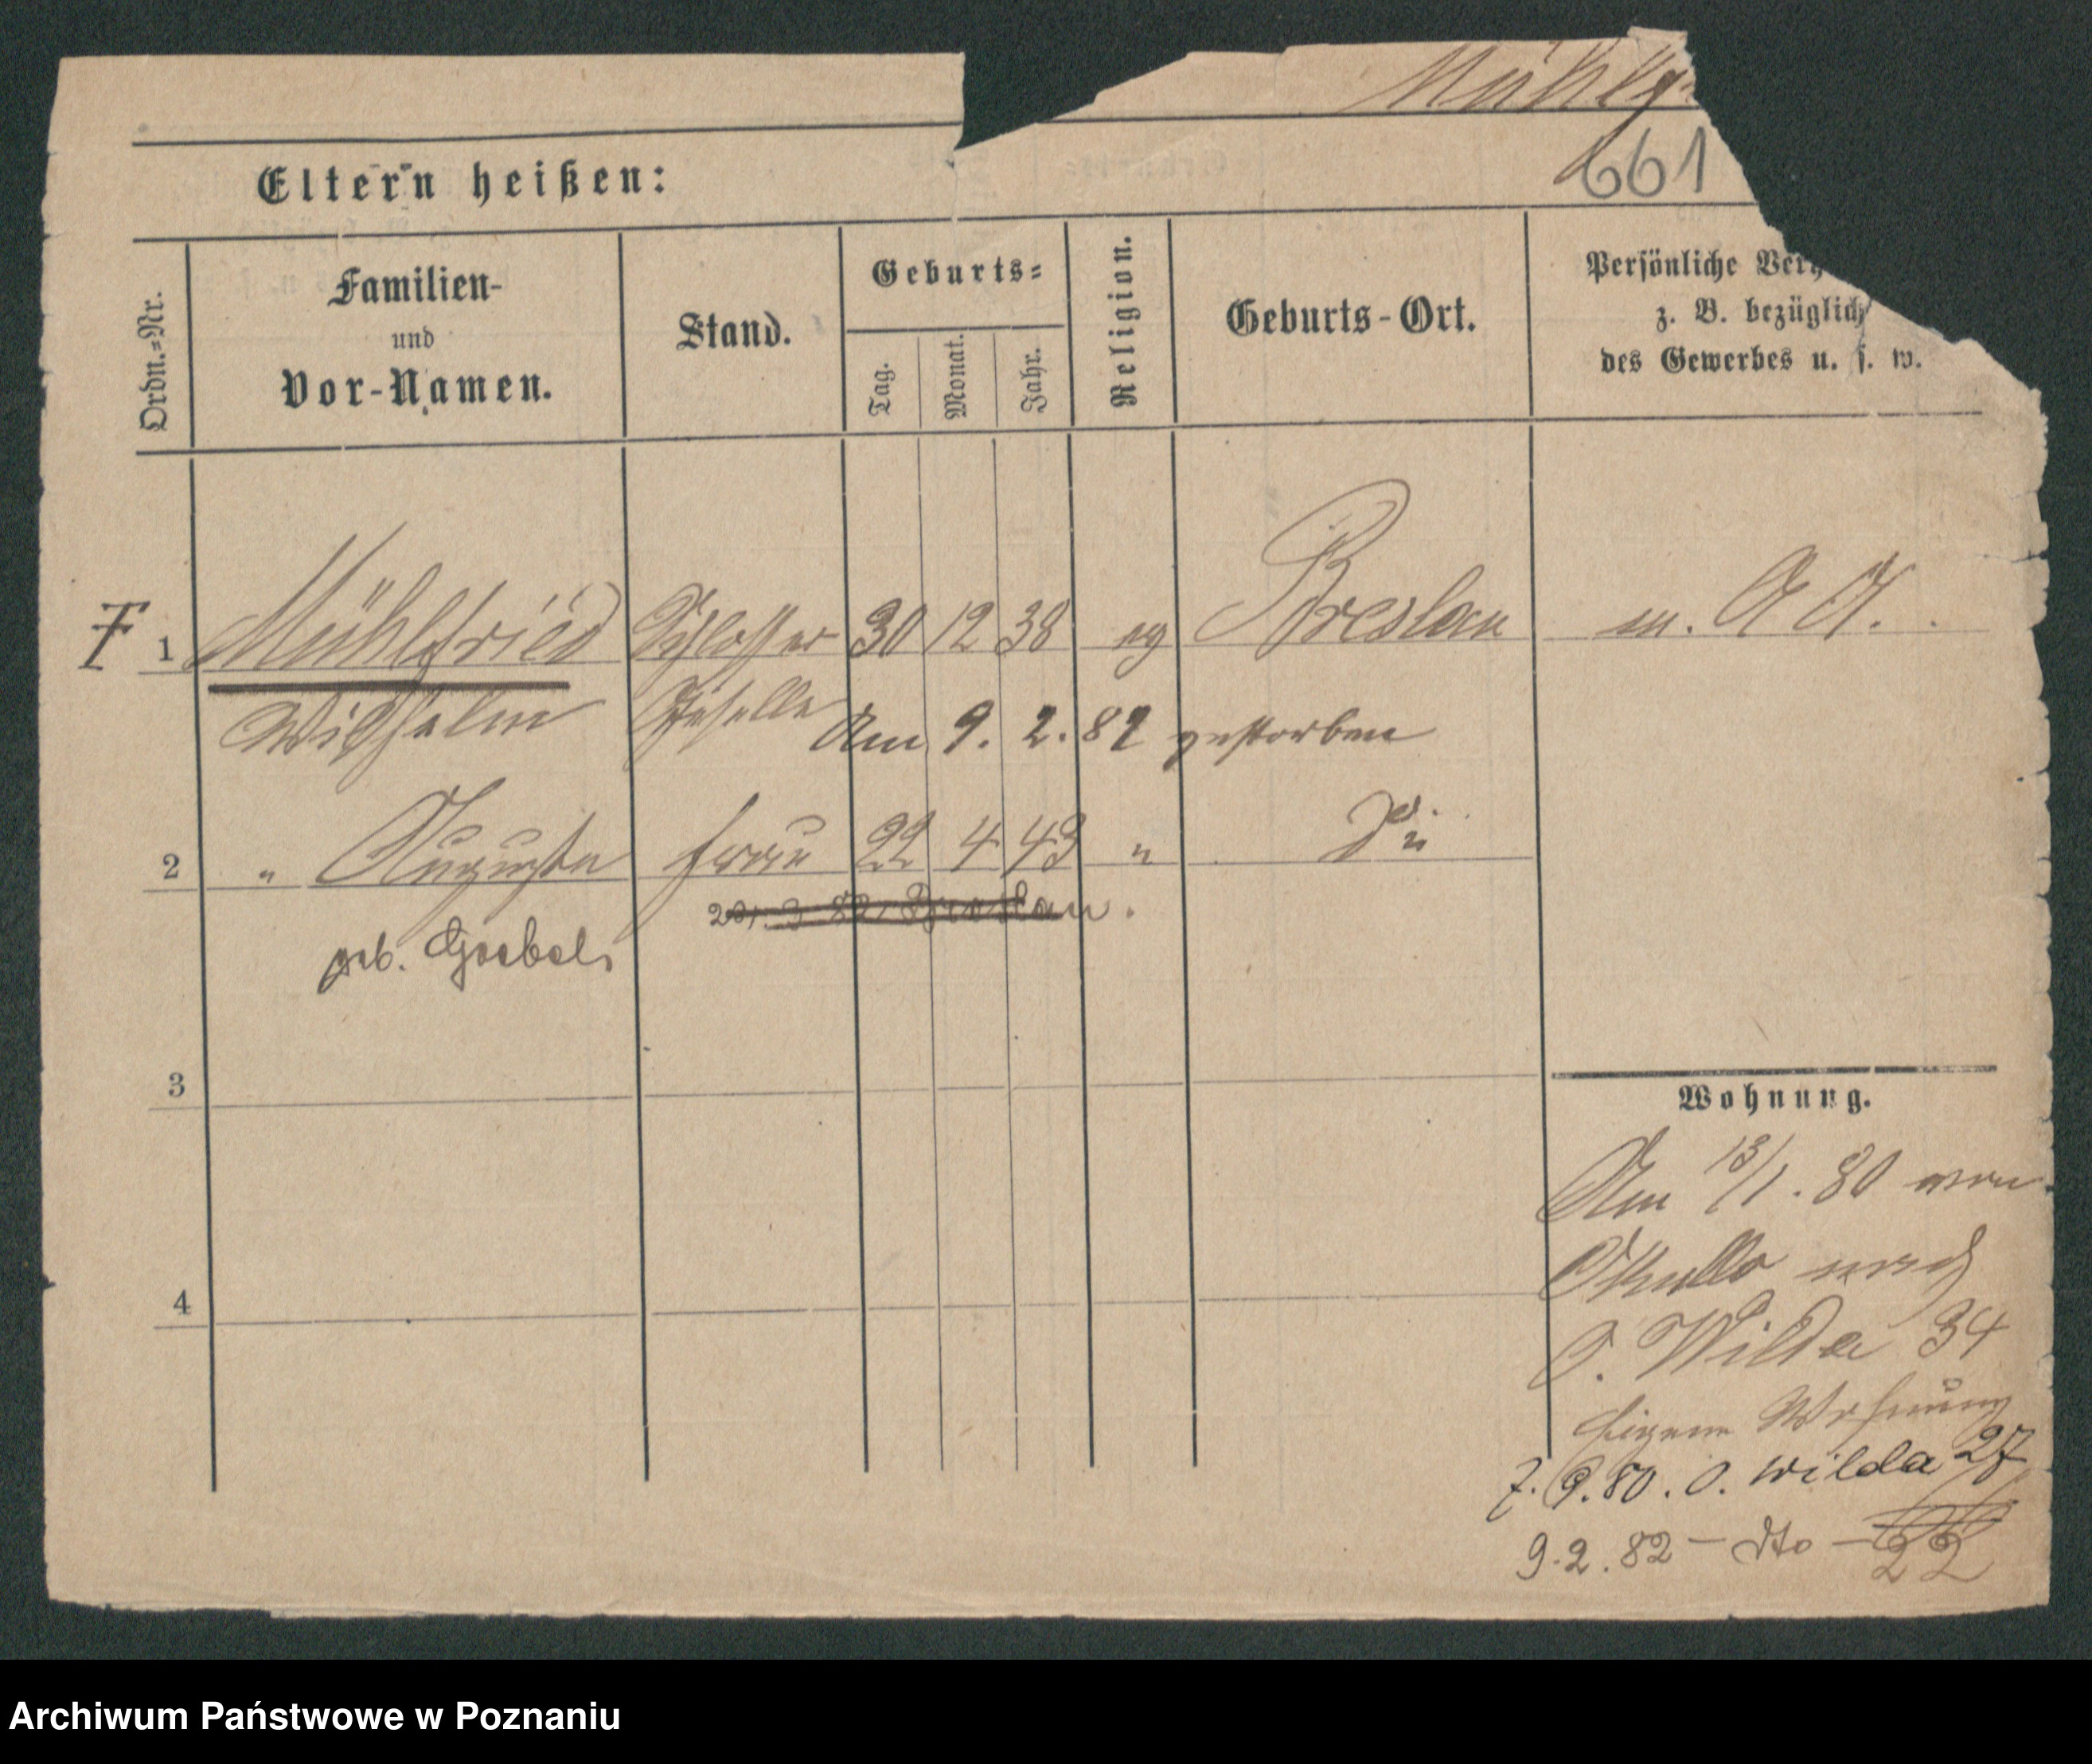 Mühlf
661
Eltern heißen:
Ordn.=Nr.
Familien-
und
Vor-Namen.
Stand.
Geburts=
Tag.
Monat.
Jahr.
Religion.
Geburts-Ort.
Persönliche Ver
z. B. bezüglich
des Gewerbes u. s. w.
1 Mühlfried Schlosser 30 12 38 ev Breslau m. A A.
Wilhelm Geselle Am 9. 2. 82 gestorben
2 " Auguste Frau 22 4 43 "
3 82 Breslau.
geb. Goebel
3
4
Wohnung.
Am 13/1. 80 von
nach
O. Wilda 34
Eigene Wohnung
7. 9. 80. O. Wilda 27
9. 2. 82 – dto – 22
Archiwum Państwowe w Poznaniu